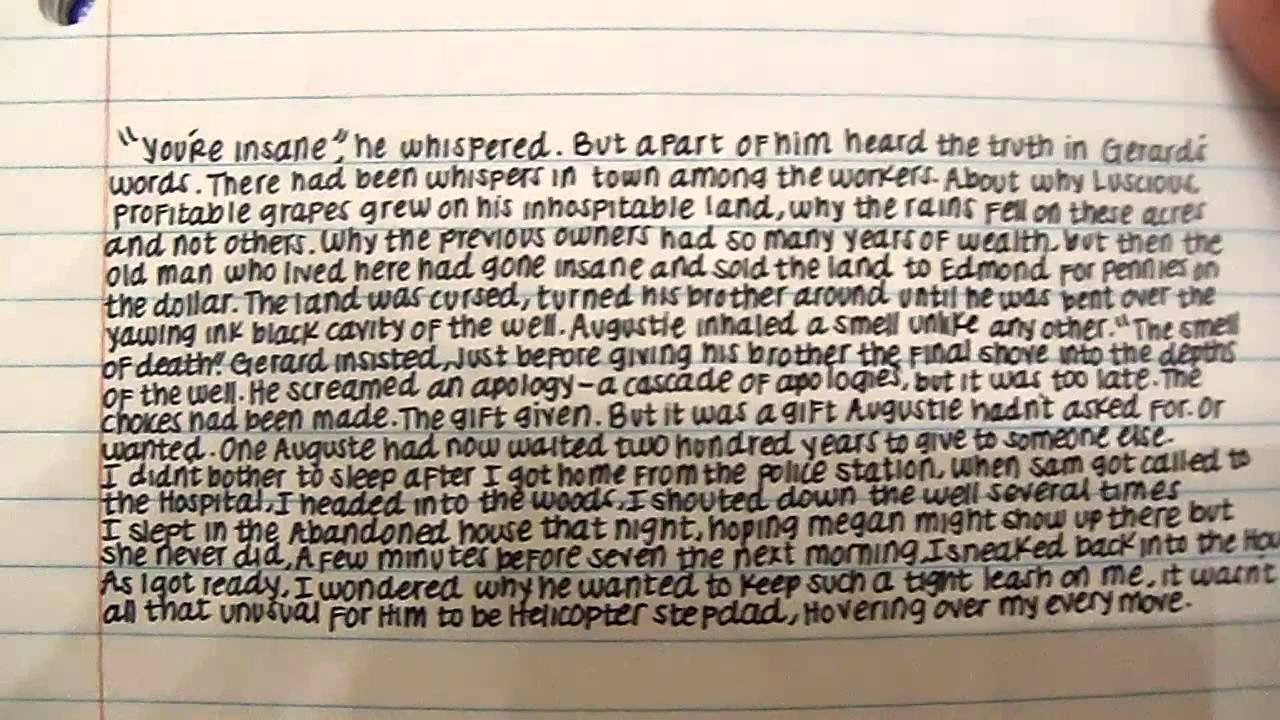 "you're insane", he whispered. But a part of him heard the truth in Gerard's
words. There had been whispers in town among the workers. About why Luscious
profitable grapes grew on his inhospitable land, why the rains fell on these acres
and not others. Why the previous owners had so many years of wealth, but then the
old man who lived here had gone insane and sold the land to Edmond for pennies on
the dollar. The land was cursed, turned his brother around until he was bent over the
yawing ink black cavity of the well. Augustie inhaled a smell unlike any other. "The smell
of death". Gerard insisted, just before giving his brother the final shove into the depths
of the well. He screamed an apology-a cascade of apologies, but it was too late. The
choices had been made. The gift given. But it was a gift Augustie hadn't asked for. or
wanted. One Auguste had now waited two hondred years to give to someone else.
I didnt bother to sleep after I got home from the police station, when Sam got called to
the Hospital, I headed into the woods, I shouted down the well several times
I slept in the Abandoned house that night, hoping megan might show up there but
she never did, A few minutes before seven the next morning, I sneaked back into the Hou
As I got ready, I wondered why he wanted to keep such a tight leash on me, it wasnt
all that unusual for Him to be Helicopter stepdad, Hovering over my every move.